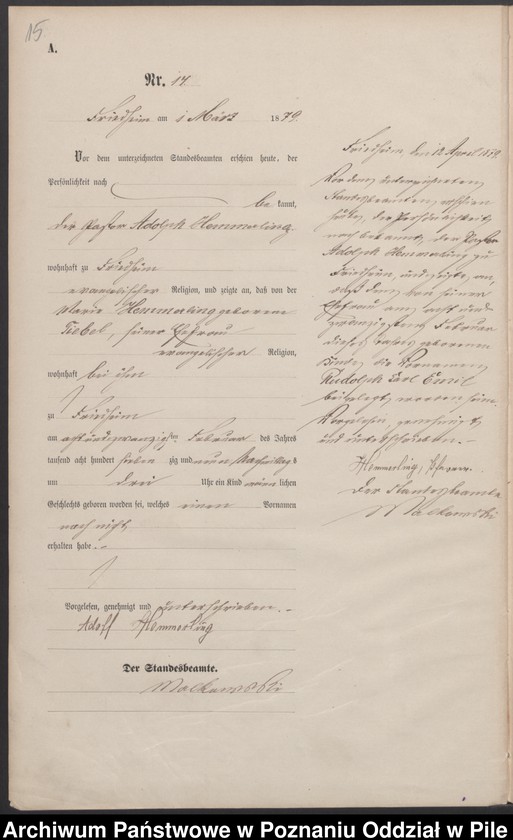 15
A.
Nr. 14
Friedheim am 1 März 1879.
Vor dem unterzeichneten Standesbeamten erschien heute, der
Persönlichkeit nach
bekannt,
der Pastor Adolph Hemmerling
wohnhaft zu Friedheim
evangelischer Religion, und zeigte an, daß von der
Marie Hemmerling geborene
Tiebel, seiner Ehefrau
evangelischer Religion,
wohnhaft bei ihm
zu Friedheim
am achtundzwanzigsten Februar des Jahres
tausend acht hundert siebenzig und neun Nachmittags
um drei Uhr ein Kind männlichen
Geschlechts geboren worden sei, welches einen Vornamen
noch nicht
erhalten habe.-
Vorgelesen, genehmigt und unterschrieben.-
Adolf Hemmerling
Der Standesbeamte.
Malkowski
Friedheim, den 12 April 1879
Vor dem unterzeichneten
Standesbeamten, erschien
heute, der Persönlichkeit
nach bekannt, der Pastor
Adolph Hemmerling zu
Friedheim, und zeigte an,
daß dem von seiner
Ehefrau am acht und
zwanzigsten Februar
dieses Jahres geborenen
Kinde, die Vornamen
Rudolph Carl Emil
beigelegt worden seien.
Vorgelesen, genehmigt
und unterschrieben.-
Hemmerling, Pfarrer.
Der Standesbeamte
Malkowski
Archiwum Państwowe w Poznaniu Oddział w Pile